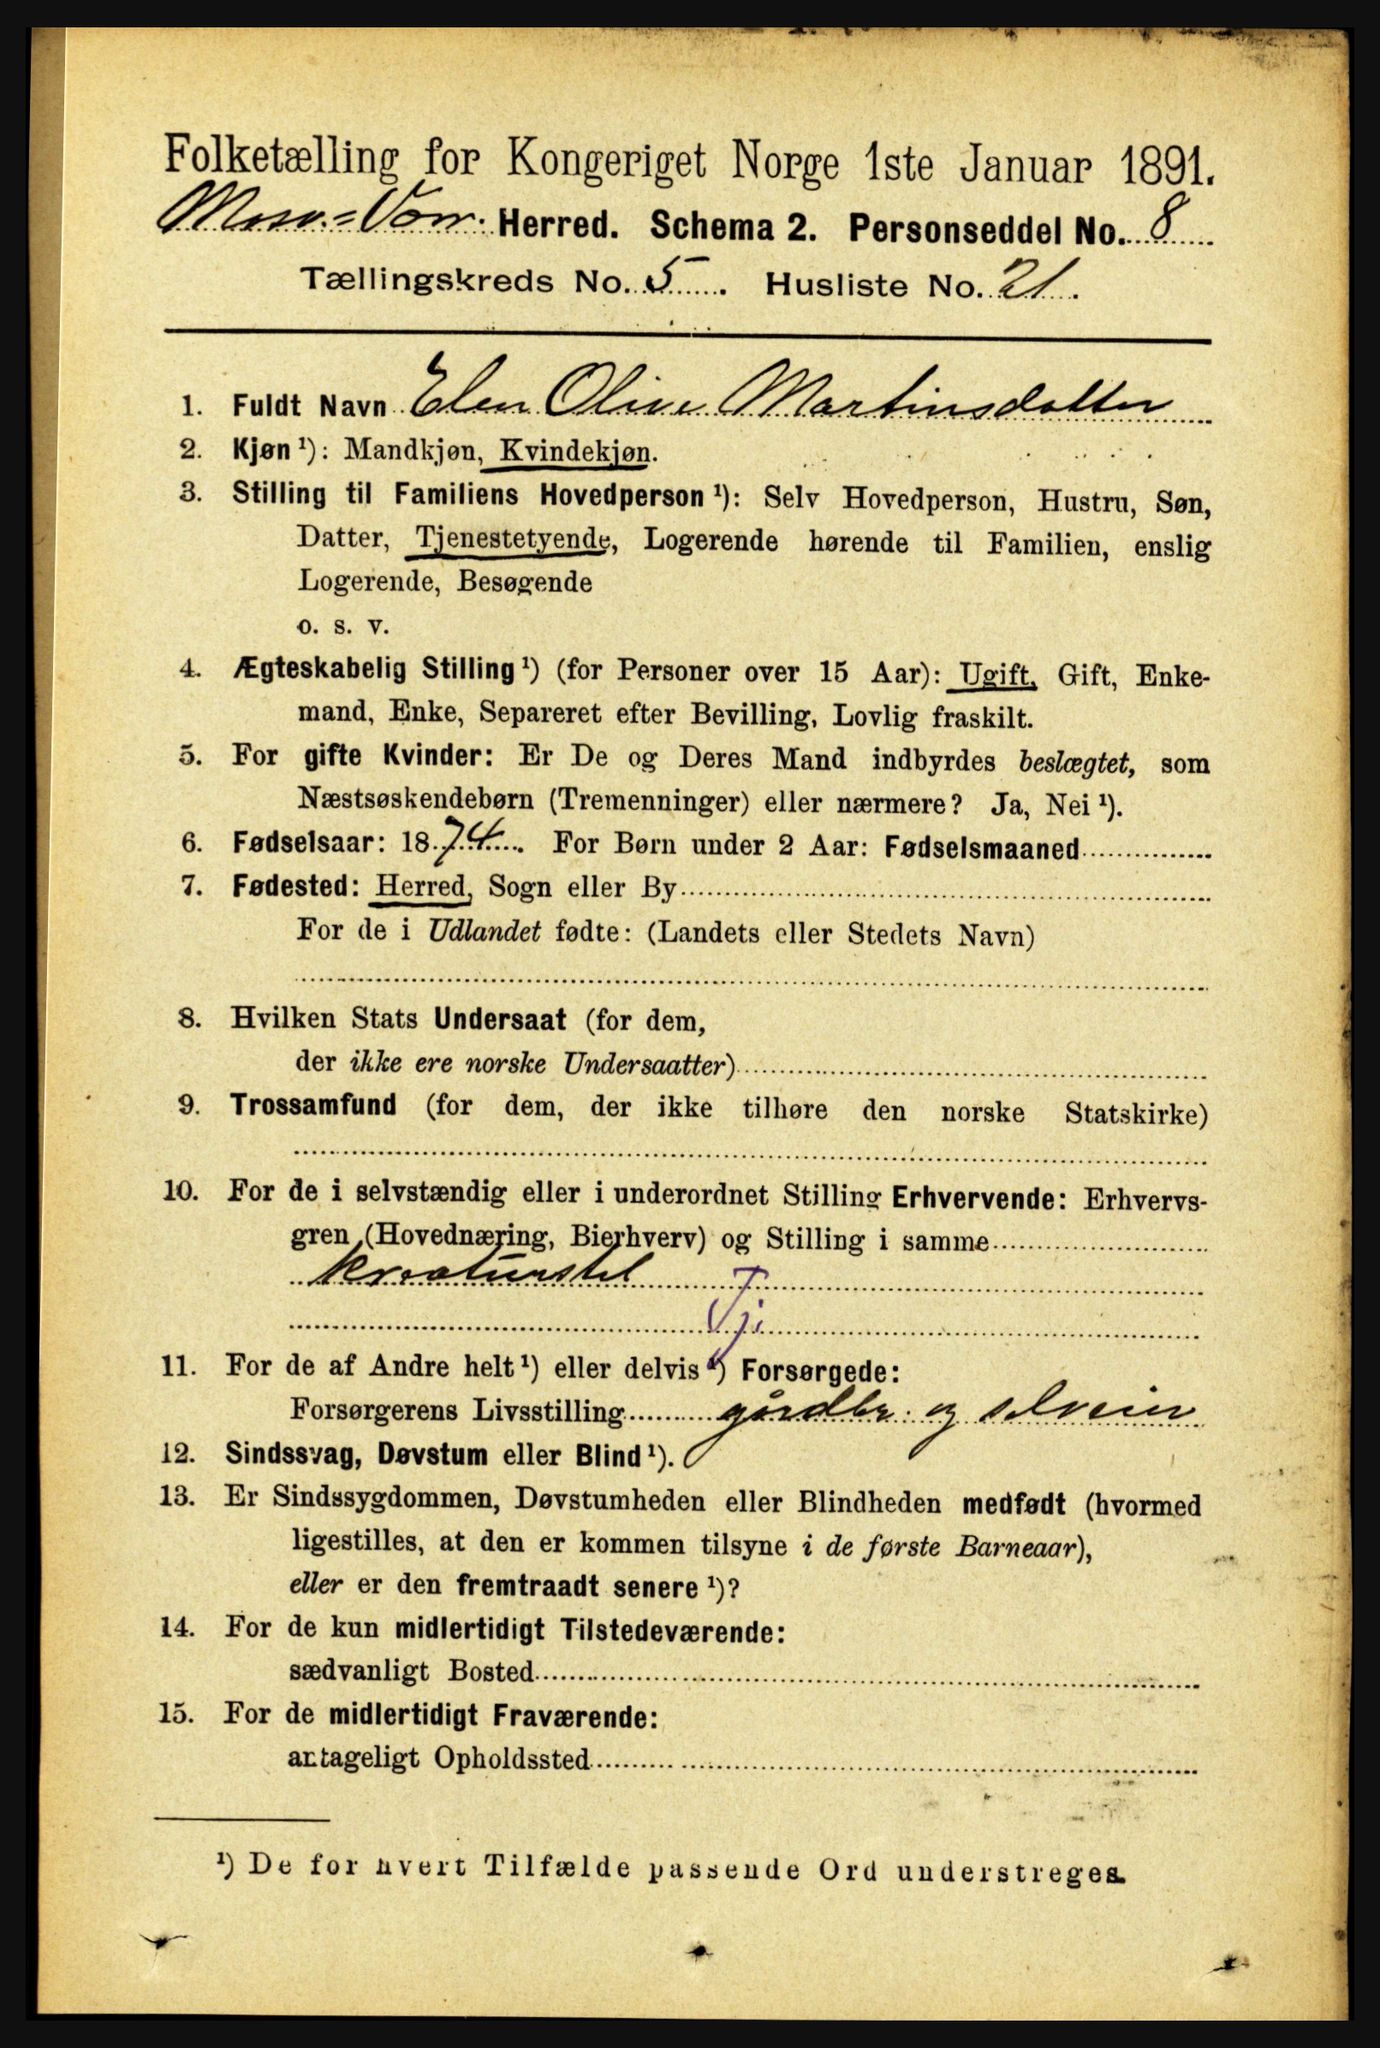 Folketælling for Kongeriget Norge 1ste Januar 1891.
Herred. Schema 2. Personseddel No. 8
Tællingskreds No. 5. Husliste No. 21.
1. Fuldt Navn Elen Olive Martinsdatter
2. Kjøn¹): Mandkjøn, Kvindekjøn.
3. Stilling til Familiens Hovedperson¹): Selv Hovedperson, Hustru, Søn,
Datter, Tjenestetyende, Logerende hørende til Familien, enslig
Logerende, Besøgende
o. s. v.
4. Ægteskabelig Stilling¹) (for Personer over 15 Aar): Ugift, Gift, Enke-
mand, Enke, Separeret efter Bevilling, Lovlig fraskilt.
5. For gifte Kvinder: Er De og Deres Mand indbyrdes beslægtet, som
Næstsøskendebørn (Tremenninger) eller nærmere? Ja, Nei¹).
6. Fødselsaar: 1874. For Børn under 2 Aar: Fødselsmaaned
7. Fødested: Herred, Sogn eller By
For de i Udlandet fødte: (Landets eller Stedets Navn)
8. Hvilken Stats Undersaat (for dem,
der ikke ere norske Undersaatter)
9. Trossamfund (for dem, der ikke tilhøre den norske Statskirke)
10. For de i selvstændig eller i underordnet Stilling Erhvervende: Erhvervs-
gren (Hovednæring, Bierhverv) og Stilling i samme
kreaturstel
Tj.
11. For de af Andre helt¹) eller delvis¹) Forsørgede:
Forsørgerens Livsstilling gårdbr. og selveier
12. Sindssvag, Døvstum eller Blind¹).
13. Er Sindssygdommen, Døvstumheden eller Blindheden medfødt (hvormed
ligestilles, at den er kommen tilsyne i de første Barneaar),
eller er den fremtraadt senere¹)?
14. For de kun midlertidigt Tilstedeværende:
sædvanligt Bosted
15. For de midlertidigt Fraværende:
antageligt Opholdssted
¹) De for hvert Tilfælde passende Ord understreges.